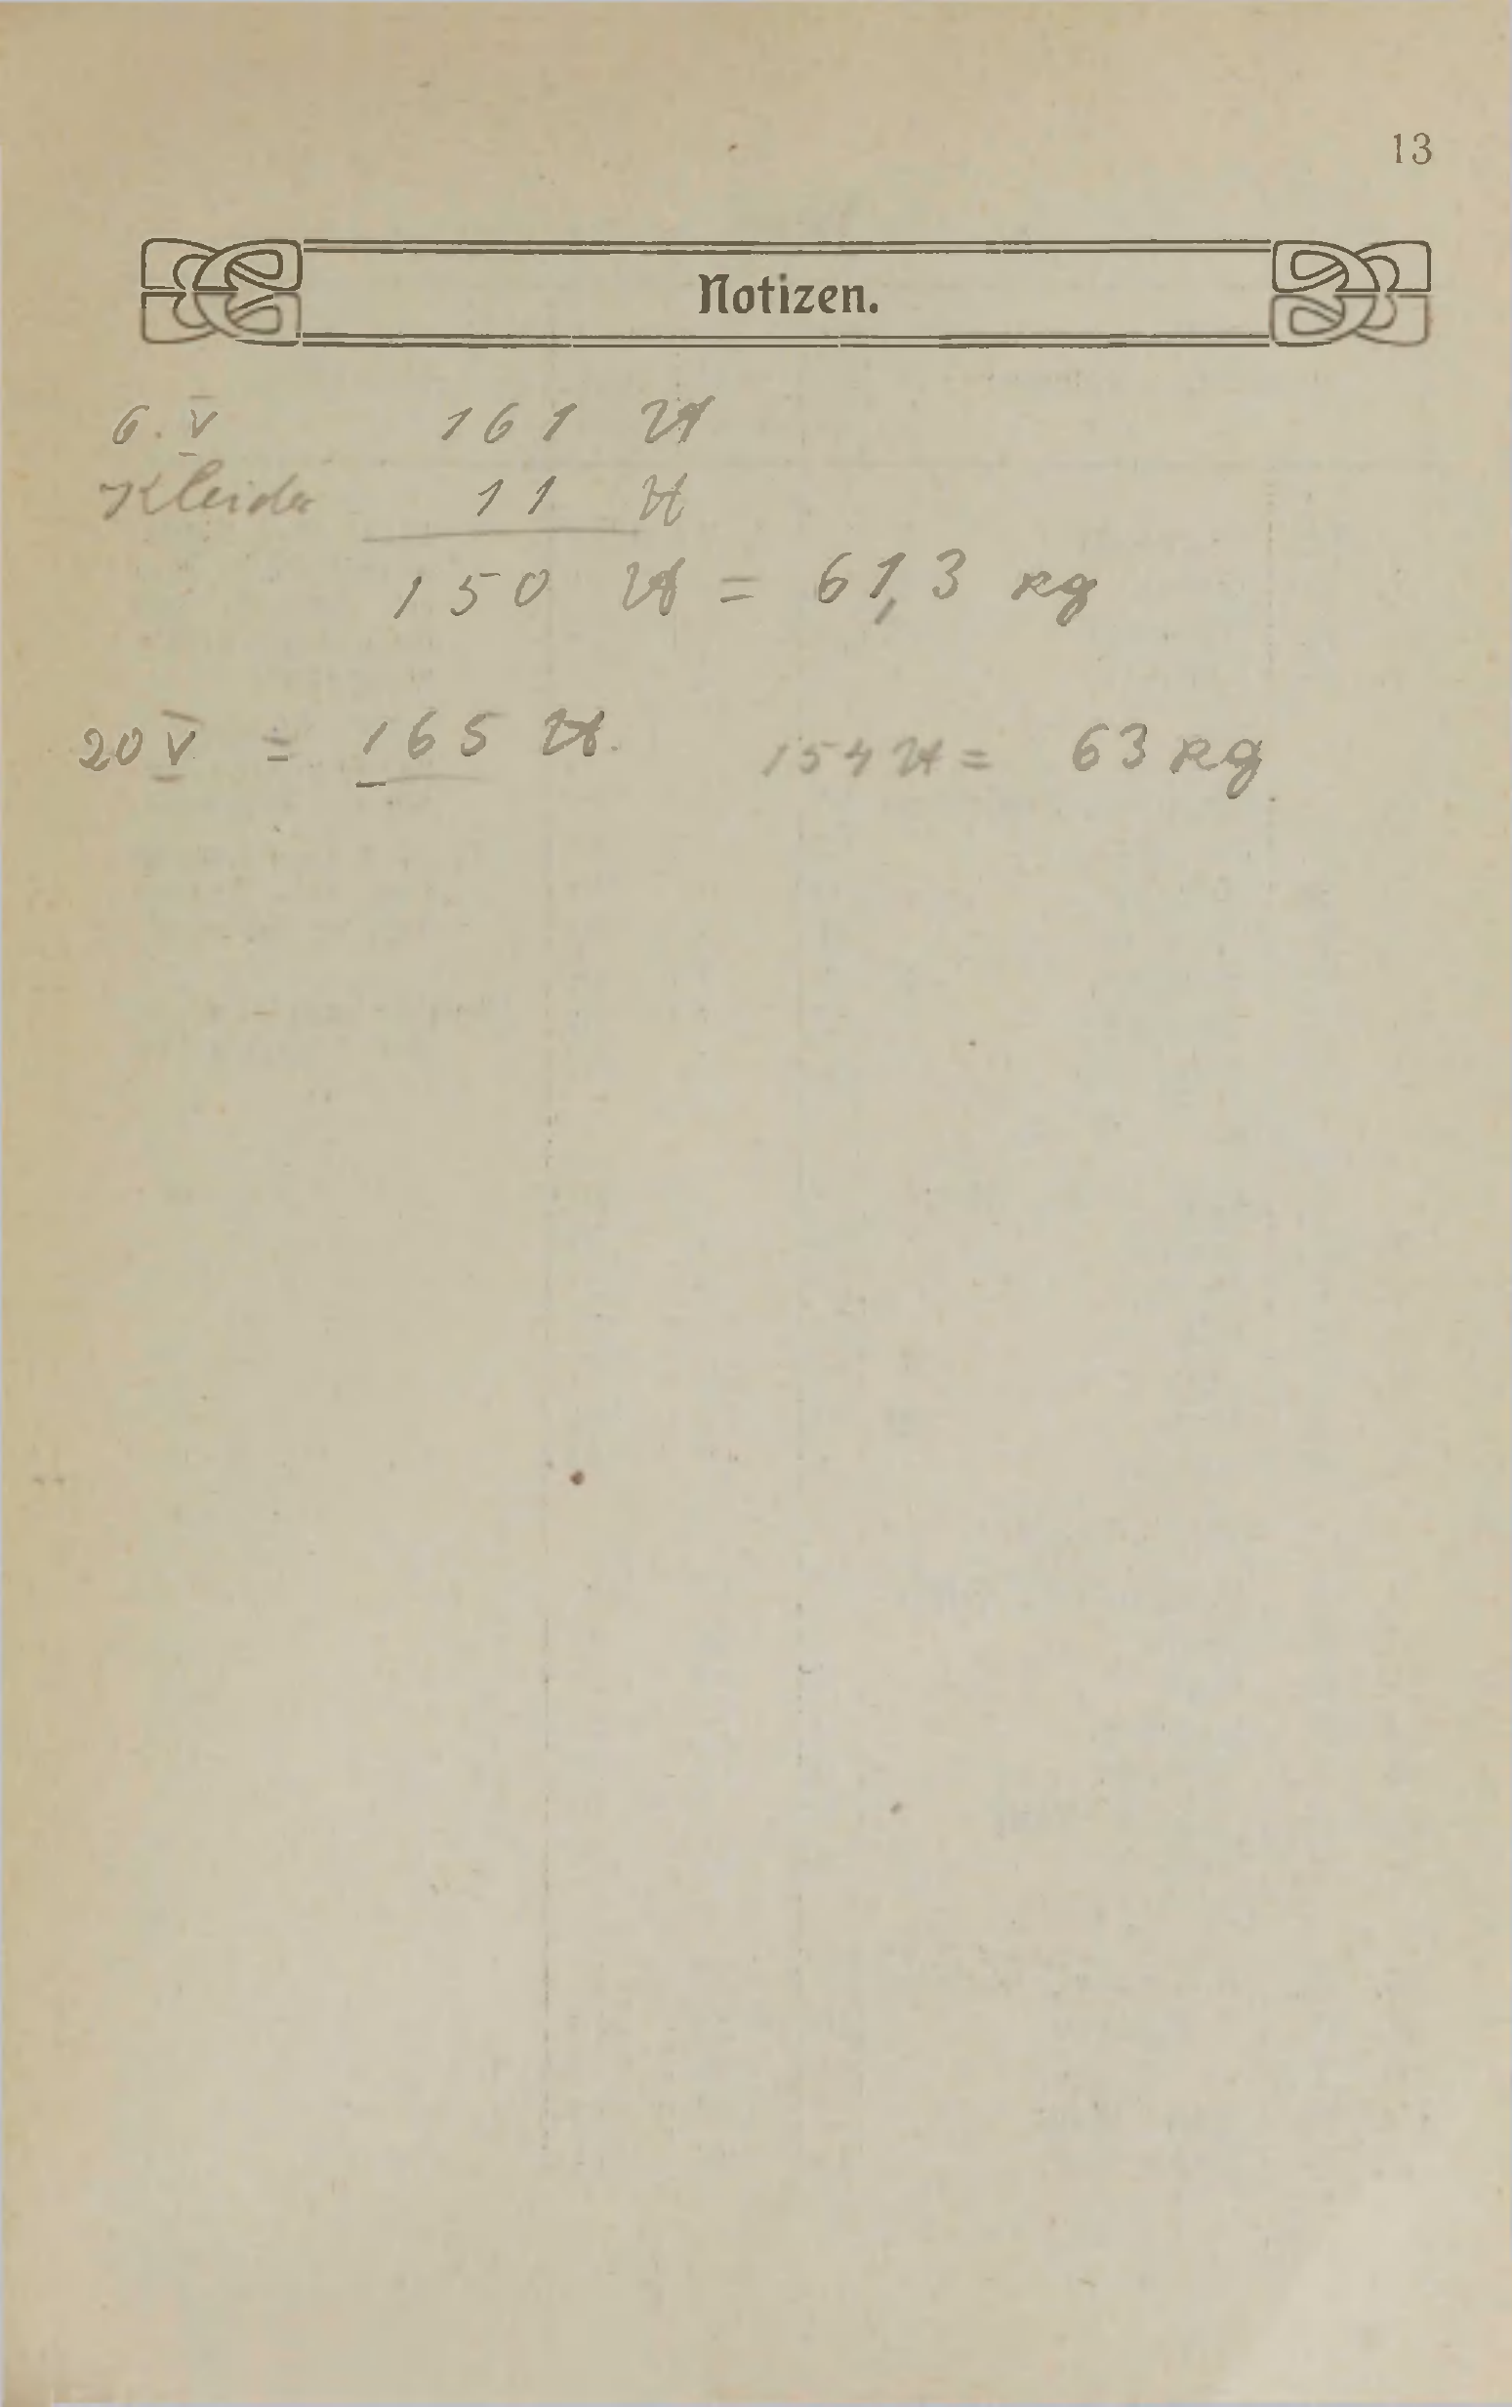 13
Notizen.
6. V 161 ℔
Kleider 11 ℔
150 ℔ = 61,3 kg
20 V = 165 ℔. 154 ℔ = 63 kg.